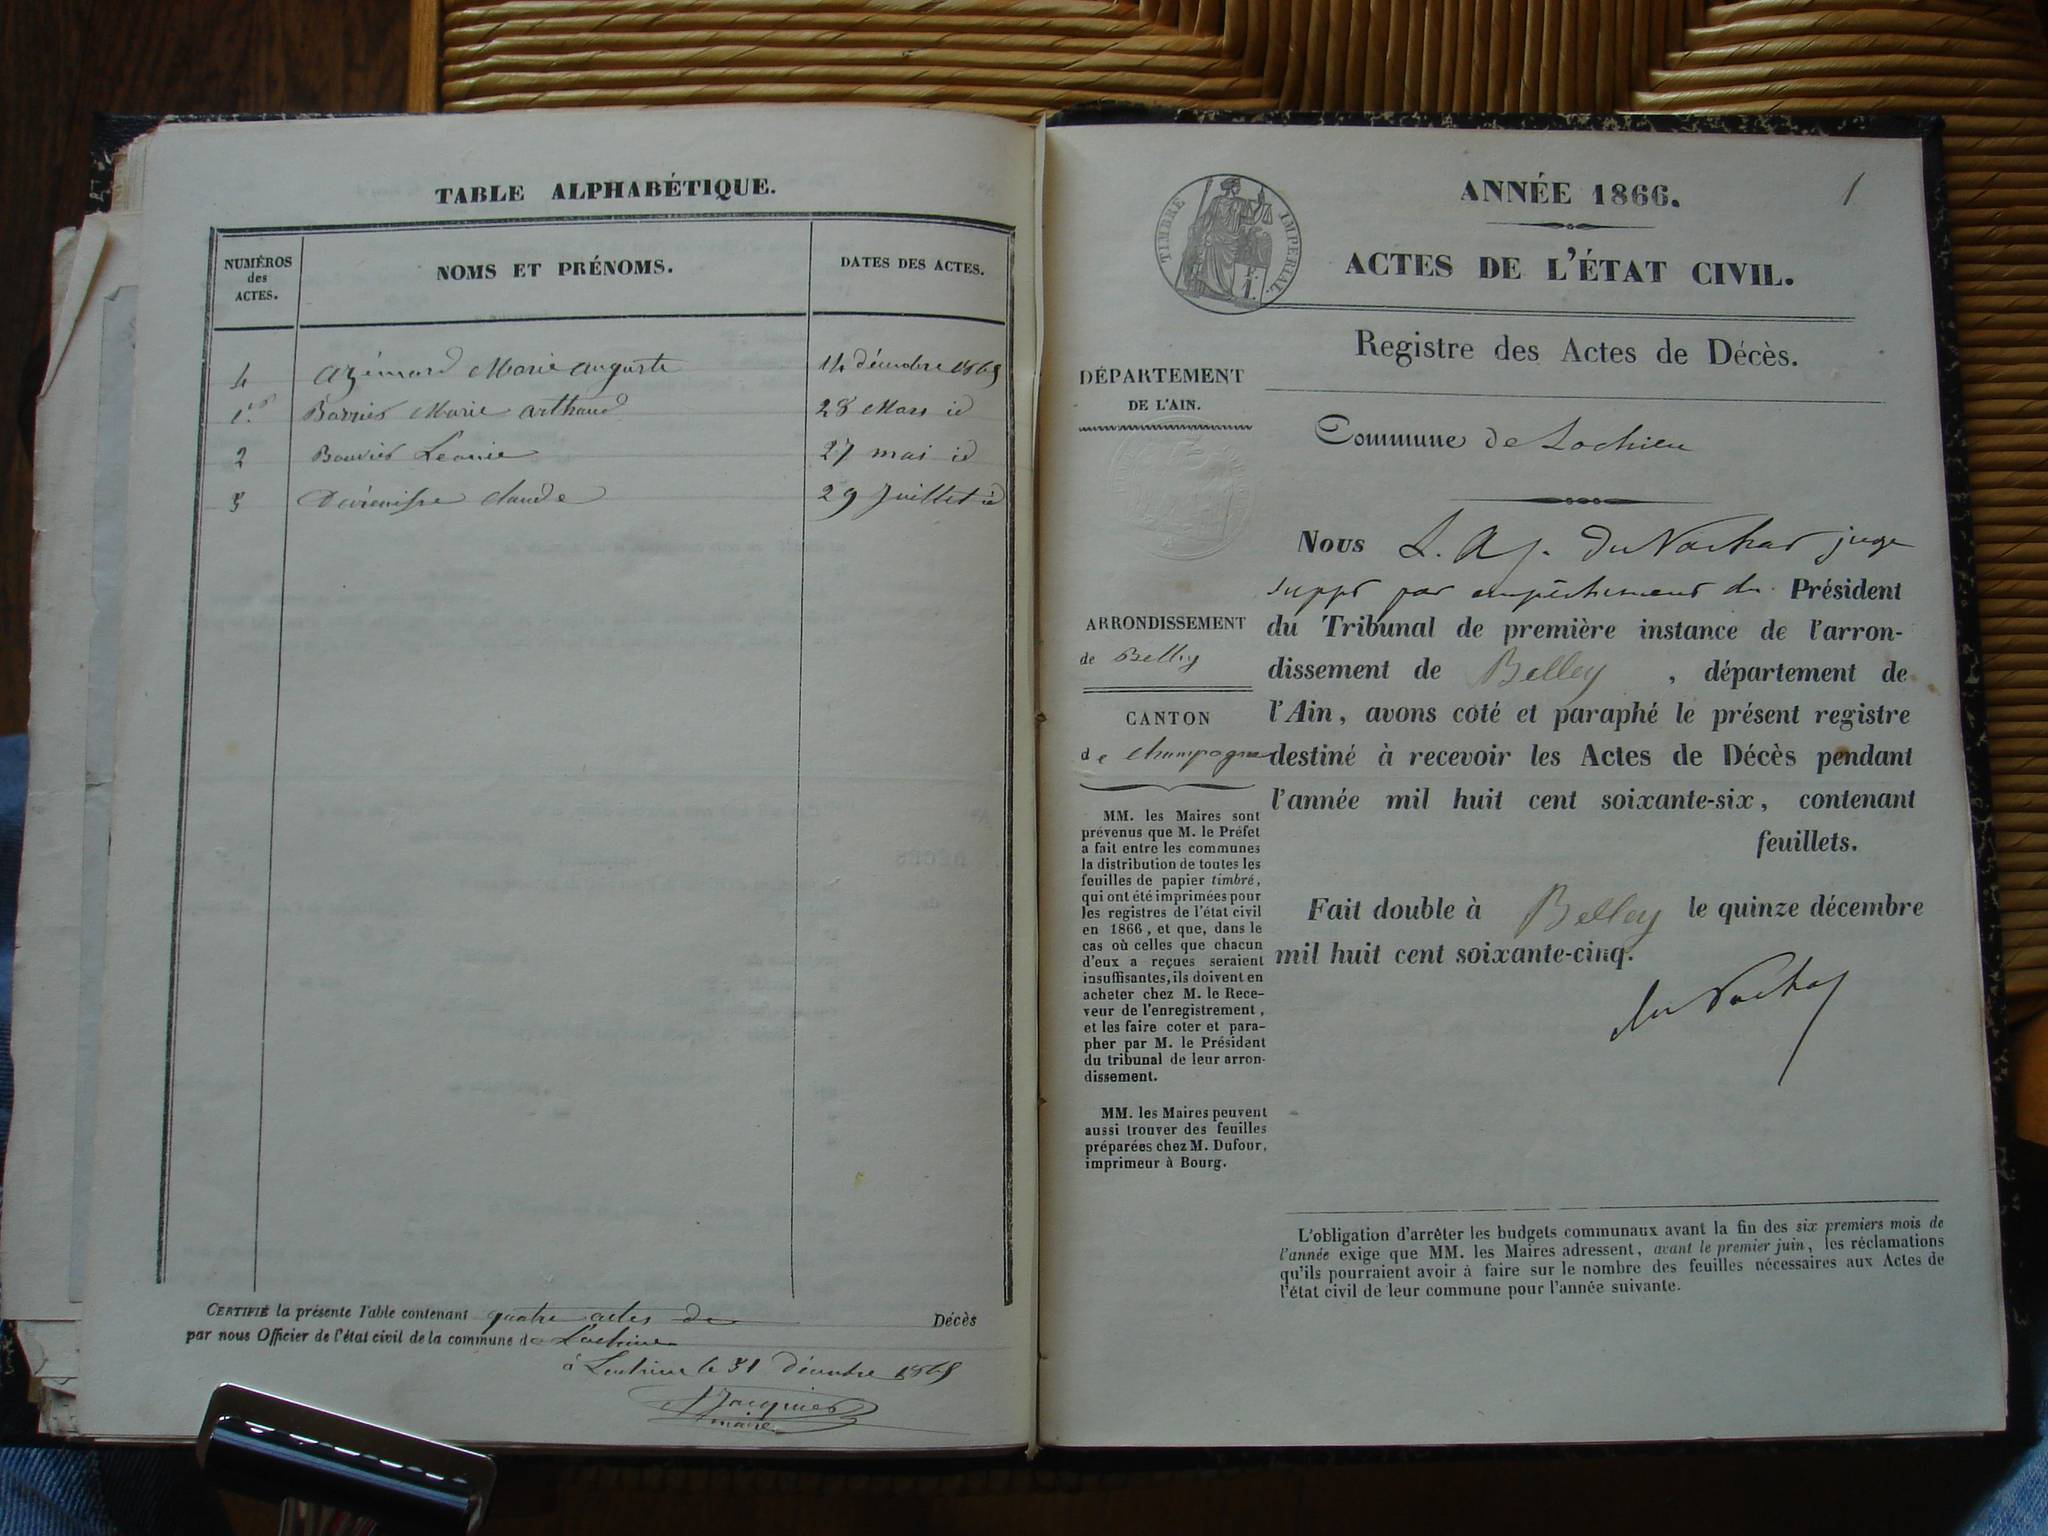 TABLE ALPHABÉTIQUE.
NUMÉROS
des
ACTES.
NOMS ET PRÉNOMS.
DATES DES ACTES.
4 Azémard Marie auguste 14 décembre 1865
1er Barrier Marie arthaud 28 Mars id
2 Bouvier Leonie 27 mai id
3 claude 29 Juillet id
CERTIFIÉ la présente Table contenant quatre actes de Décès
par nous Officier de l'état civil de la commune de Lochieu
à Lochieu le 31 décembre 1865
Jacquier
maire
1
TIMBRE IMPERIAL
ANNÉE 1866.
ACTES DE L'ÉTAT CIVIL.
Registre des Actes de Décès.
DÉPARTEMENT
DE L'AIN.
Commune de Lochieu
ARRONDISSEMENT
de Belley
CANTON
de Champagne
MM. les Maires sont
prévenus que M. le Préfet
a fait entre les communes
la distribution de toutes les
feuilles de papier timbré,
qui ont été imprimées pour
les registres de l'état civil
en 1866, et que, dans le
cas où celles que chacun
d'eux a reçues seraient
insuffisantes, ils doivent en
acheter chez M. le Rece-
veur de l'enregistrement,
et les faire coter et para-
pher par M. le Président
du tribunal de leur arron-
dissement.
MM. les Maires peuvent
aussi trouver des feuilles
préparées chez M. Dufour,
imprimeur à Bourg.
Nous L. juge
suppt par empêchement du Président
du Tribunal de première instance de l'arron-
dissement de Belley, département de
l'Ain, avons coté et paraphé le présent registre
destiné à recevoir les Actes de Décès pendant
l'année mil huit cent soixante-six, contenant
feuillets.
Fait double à Belley le quinze décembre
mil huit cent soixante-cinq.
L'obligation d'arrêter les budgets communaux avant la fin des six premiers mois de
l'année exige que MM. les Maires adressent, avant le premier juin, les réclamations
qu'ils pourraient avoir à faire sur le nombre des feuilles nécessaires aux Actes de
l'état civil de leur commune pour l'année suivante.